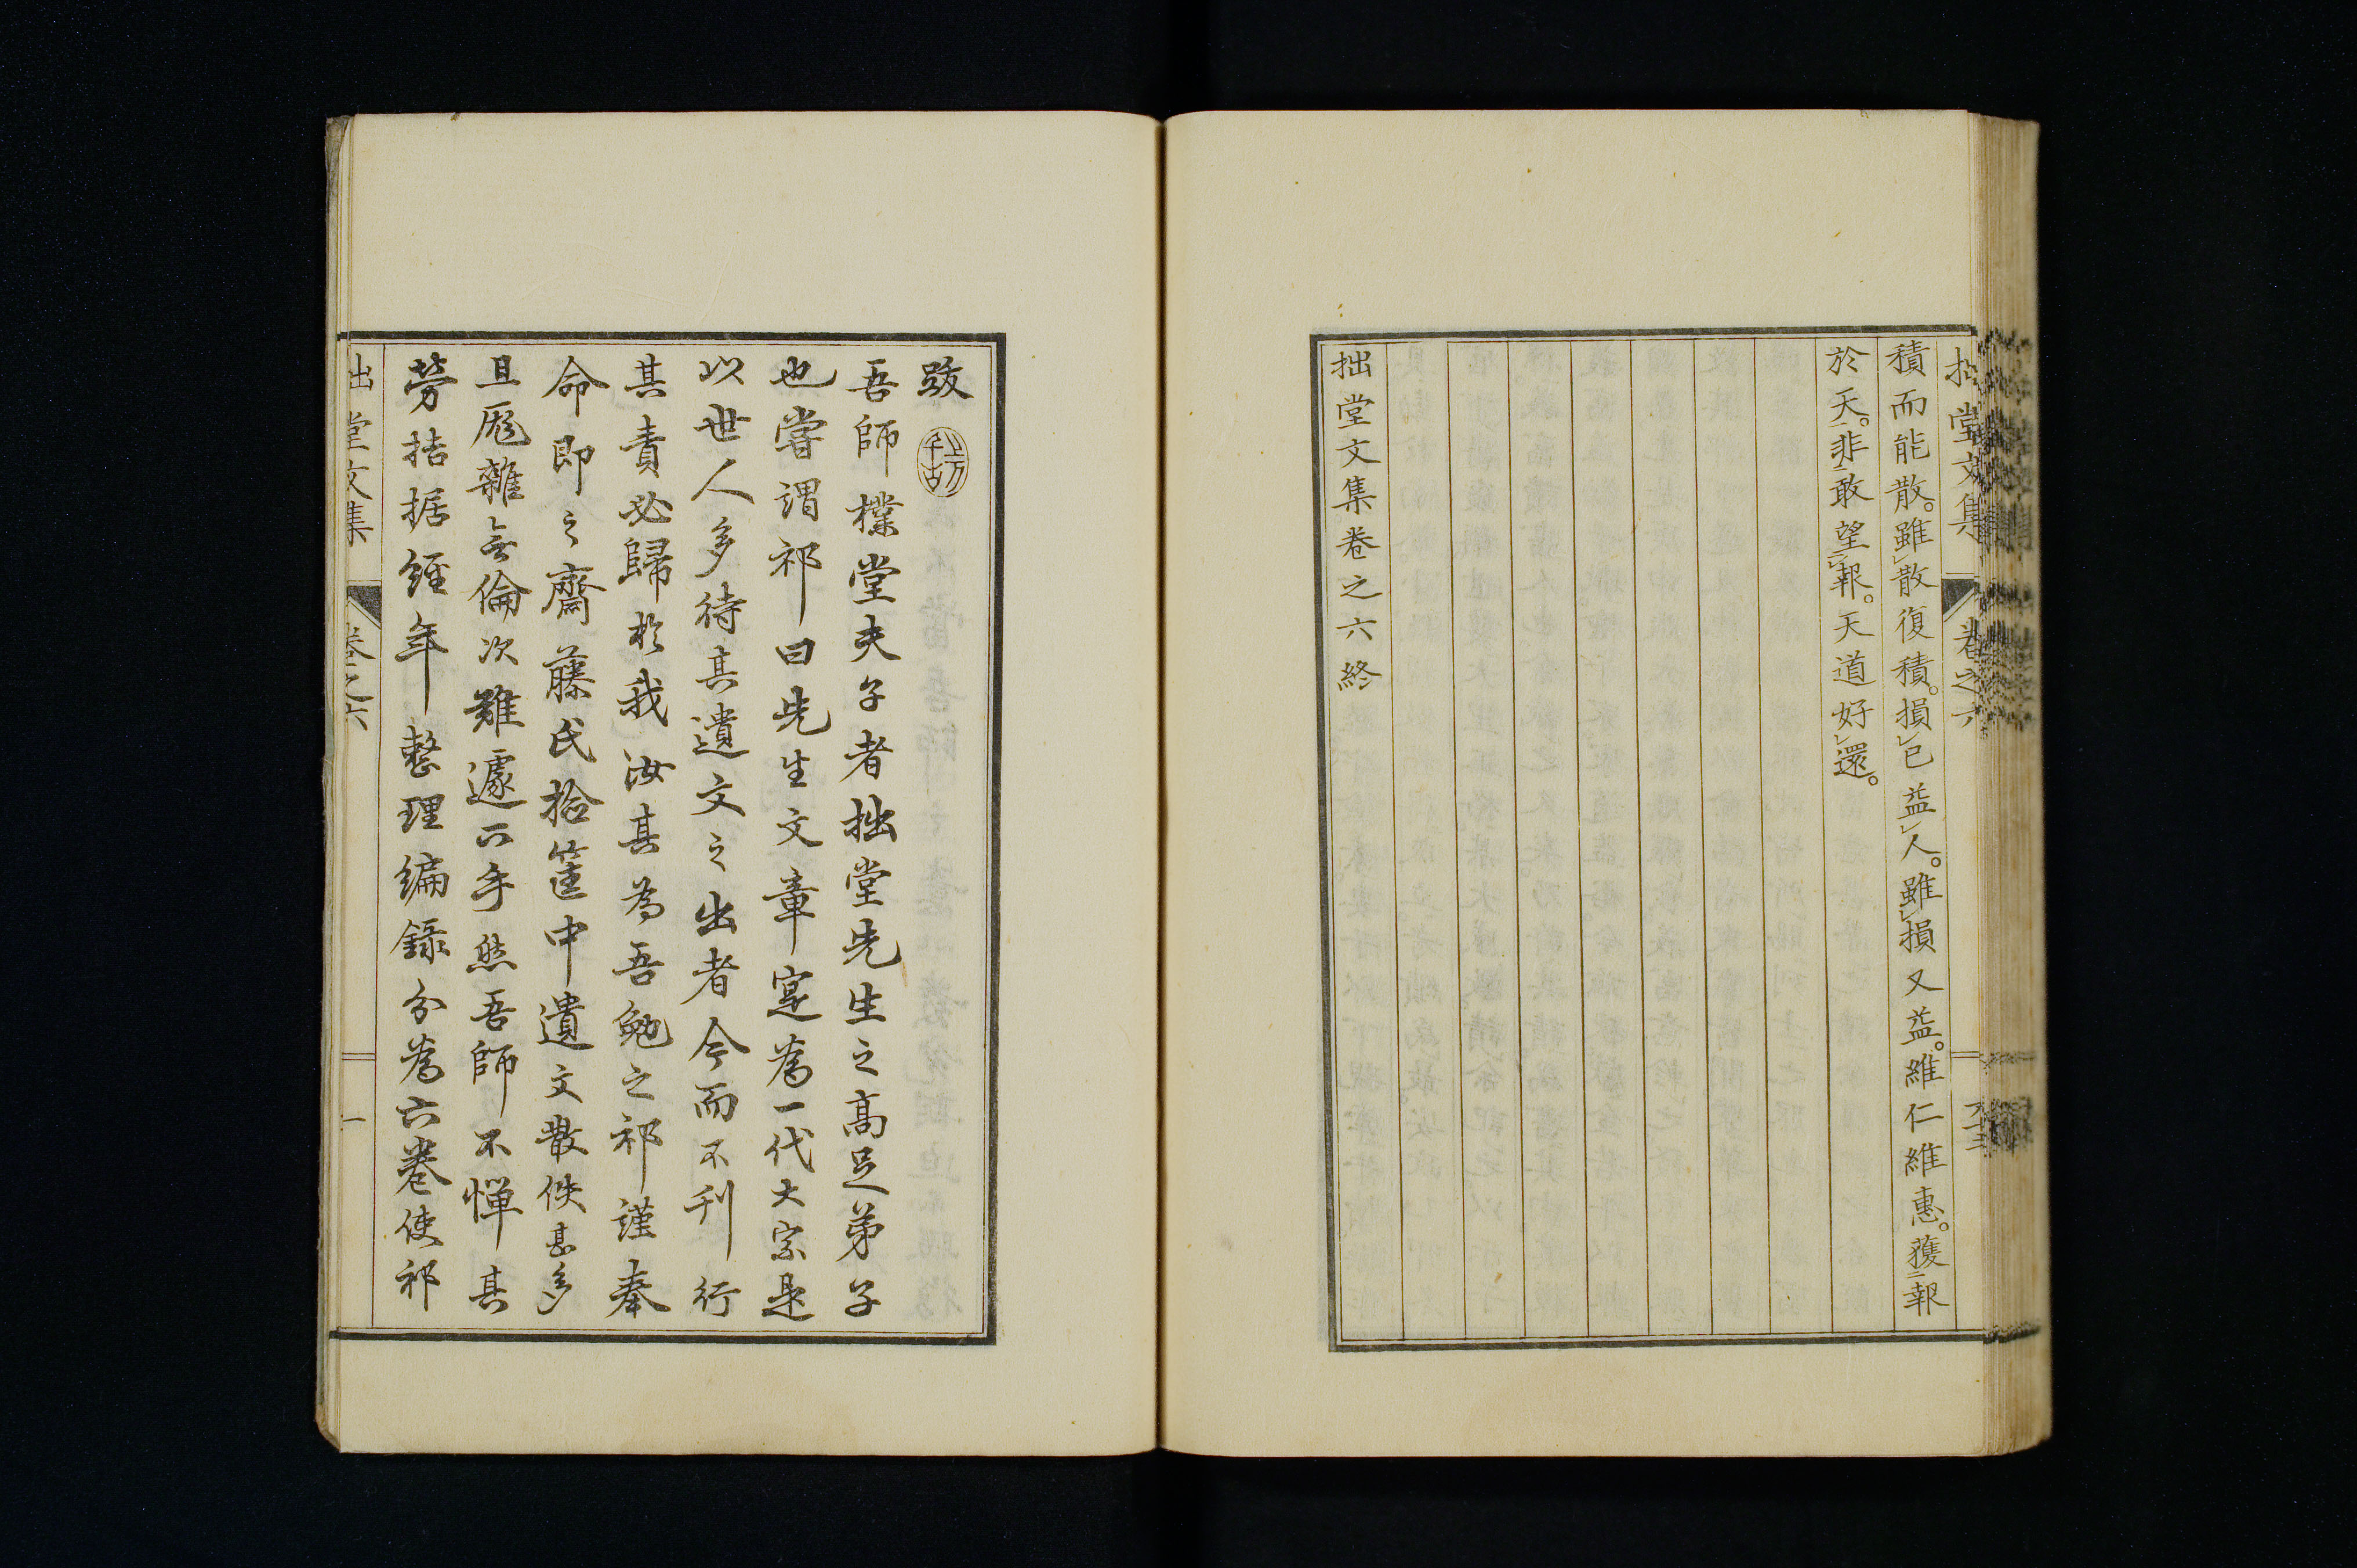 拙堂文集 卷之六
積而能散。雖㆑散復積。損㆑已益㆑人。雖㆑損又益。維仁維惠。獲㆓報
於天㆒。非㆓敢望㆒㆑報。天道好㆑還。
拙堂文集卷之六終
跋
吾師樸堂夫子者拙堂先生之高足弟子
也嘗謂祁曰先生文章寔為一代大宗是
以世人多待其遺文之出者今而不刊行
其責必歸於我汝其為吾勉之祁謹奉
命即之齋藤氏拾筐中遺文散佚甚多
且厖雜無倫次難遽下手然吾師不憚其
勞拮据經年整理編錄分為六卷使祁
拙堂文集 卷之六 一